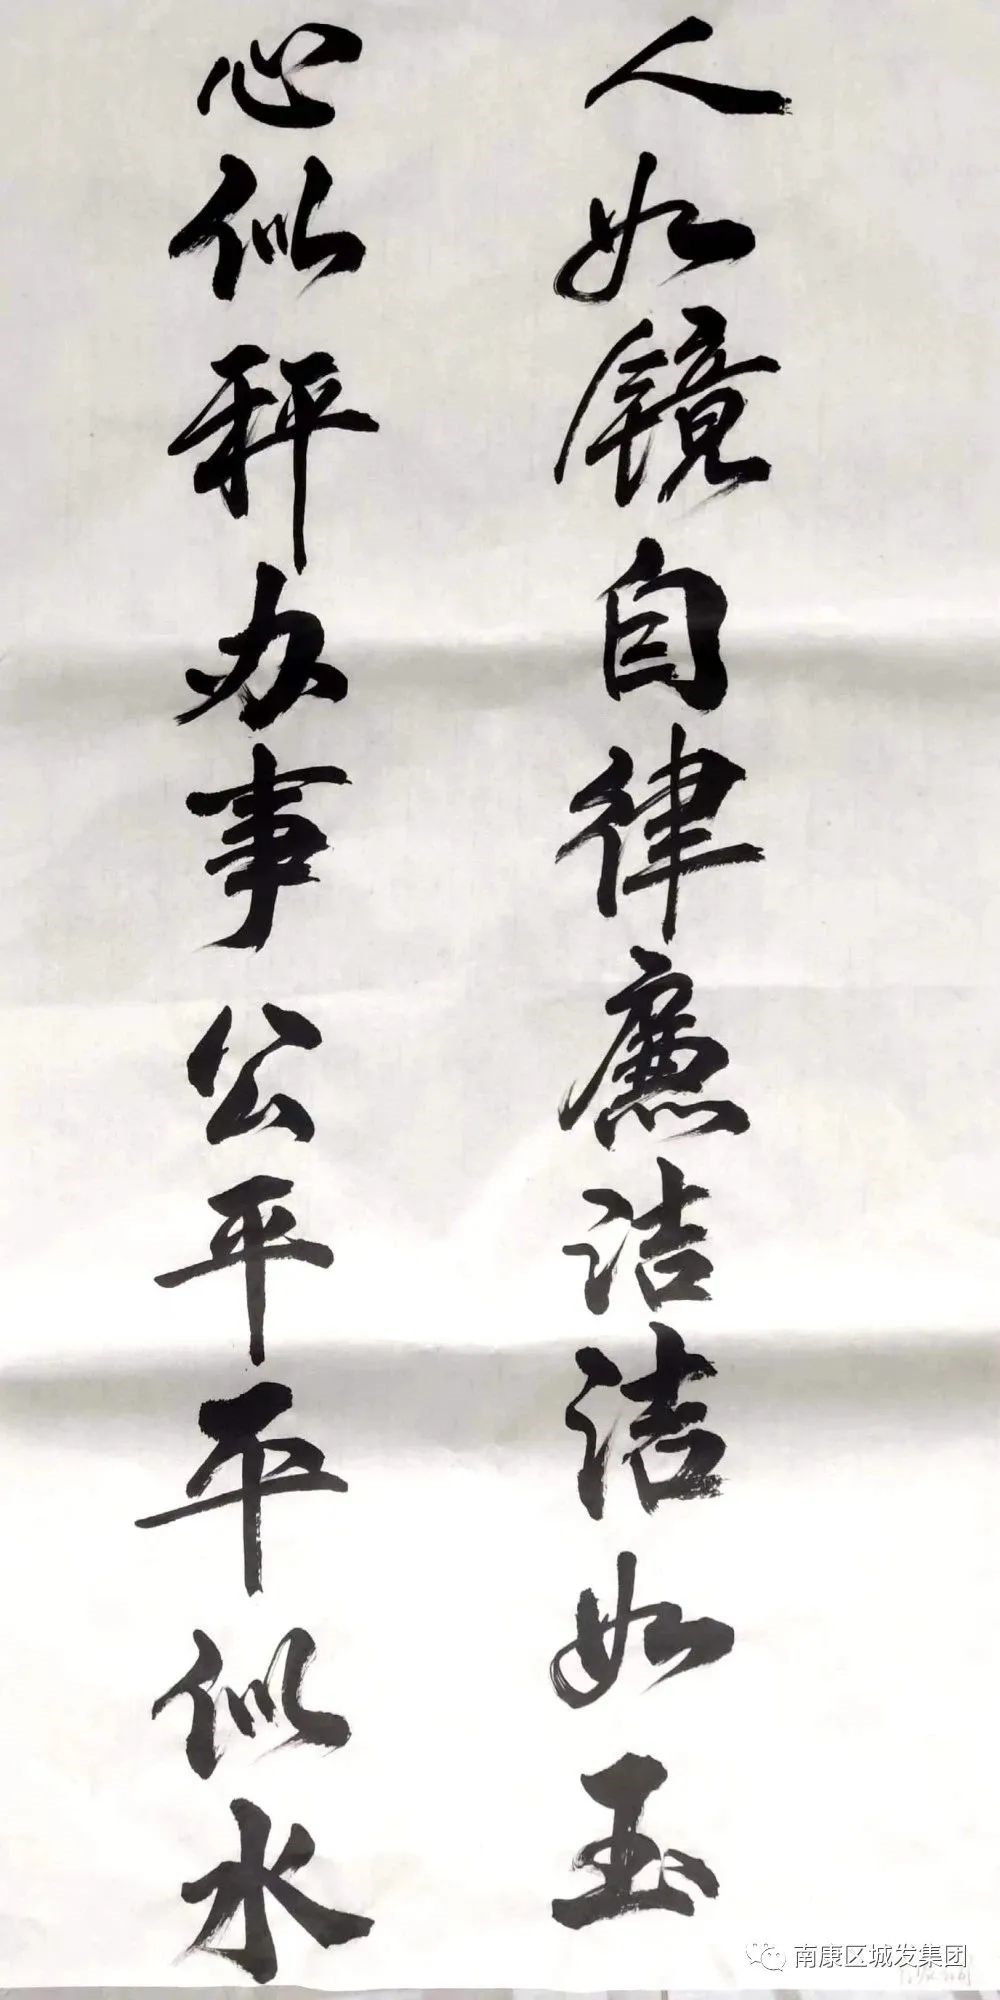 人如镜自律廉洁洁如玉
心似秤办事公平平似水
南康区城发集团